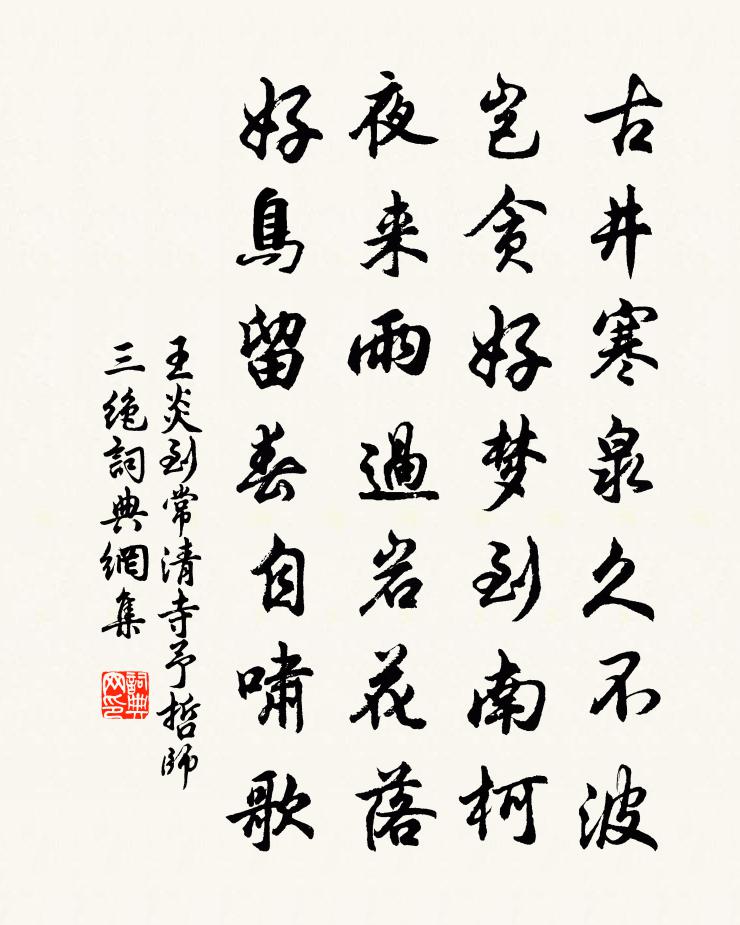 古井寒泉久不波
岂贪好梦到南柯
夜来雨過岩花落
好鳥留春自啸歌
王炎到常清寺予哲師
三绝詞典網集
詞典网印